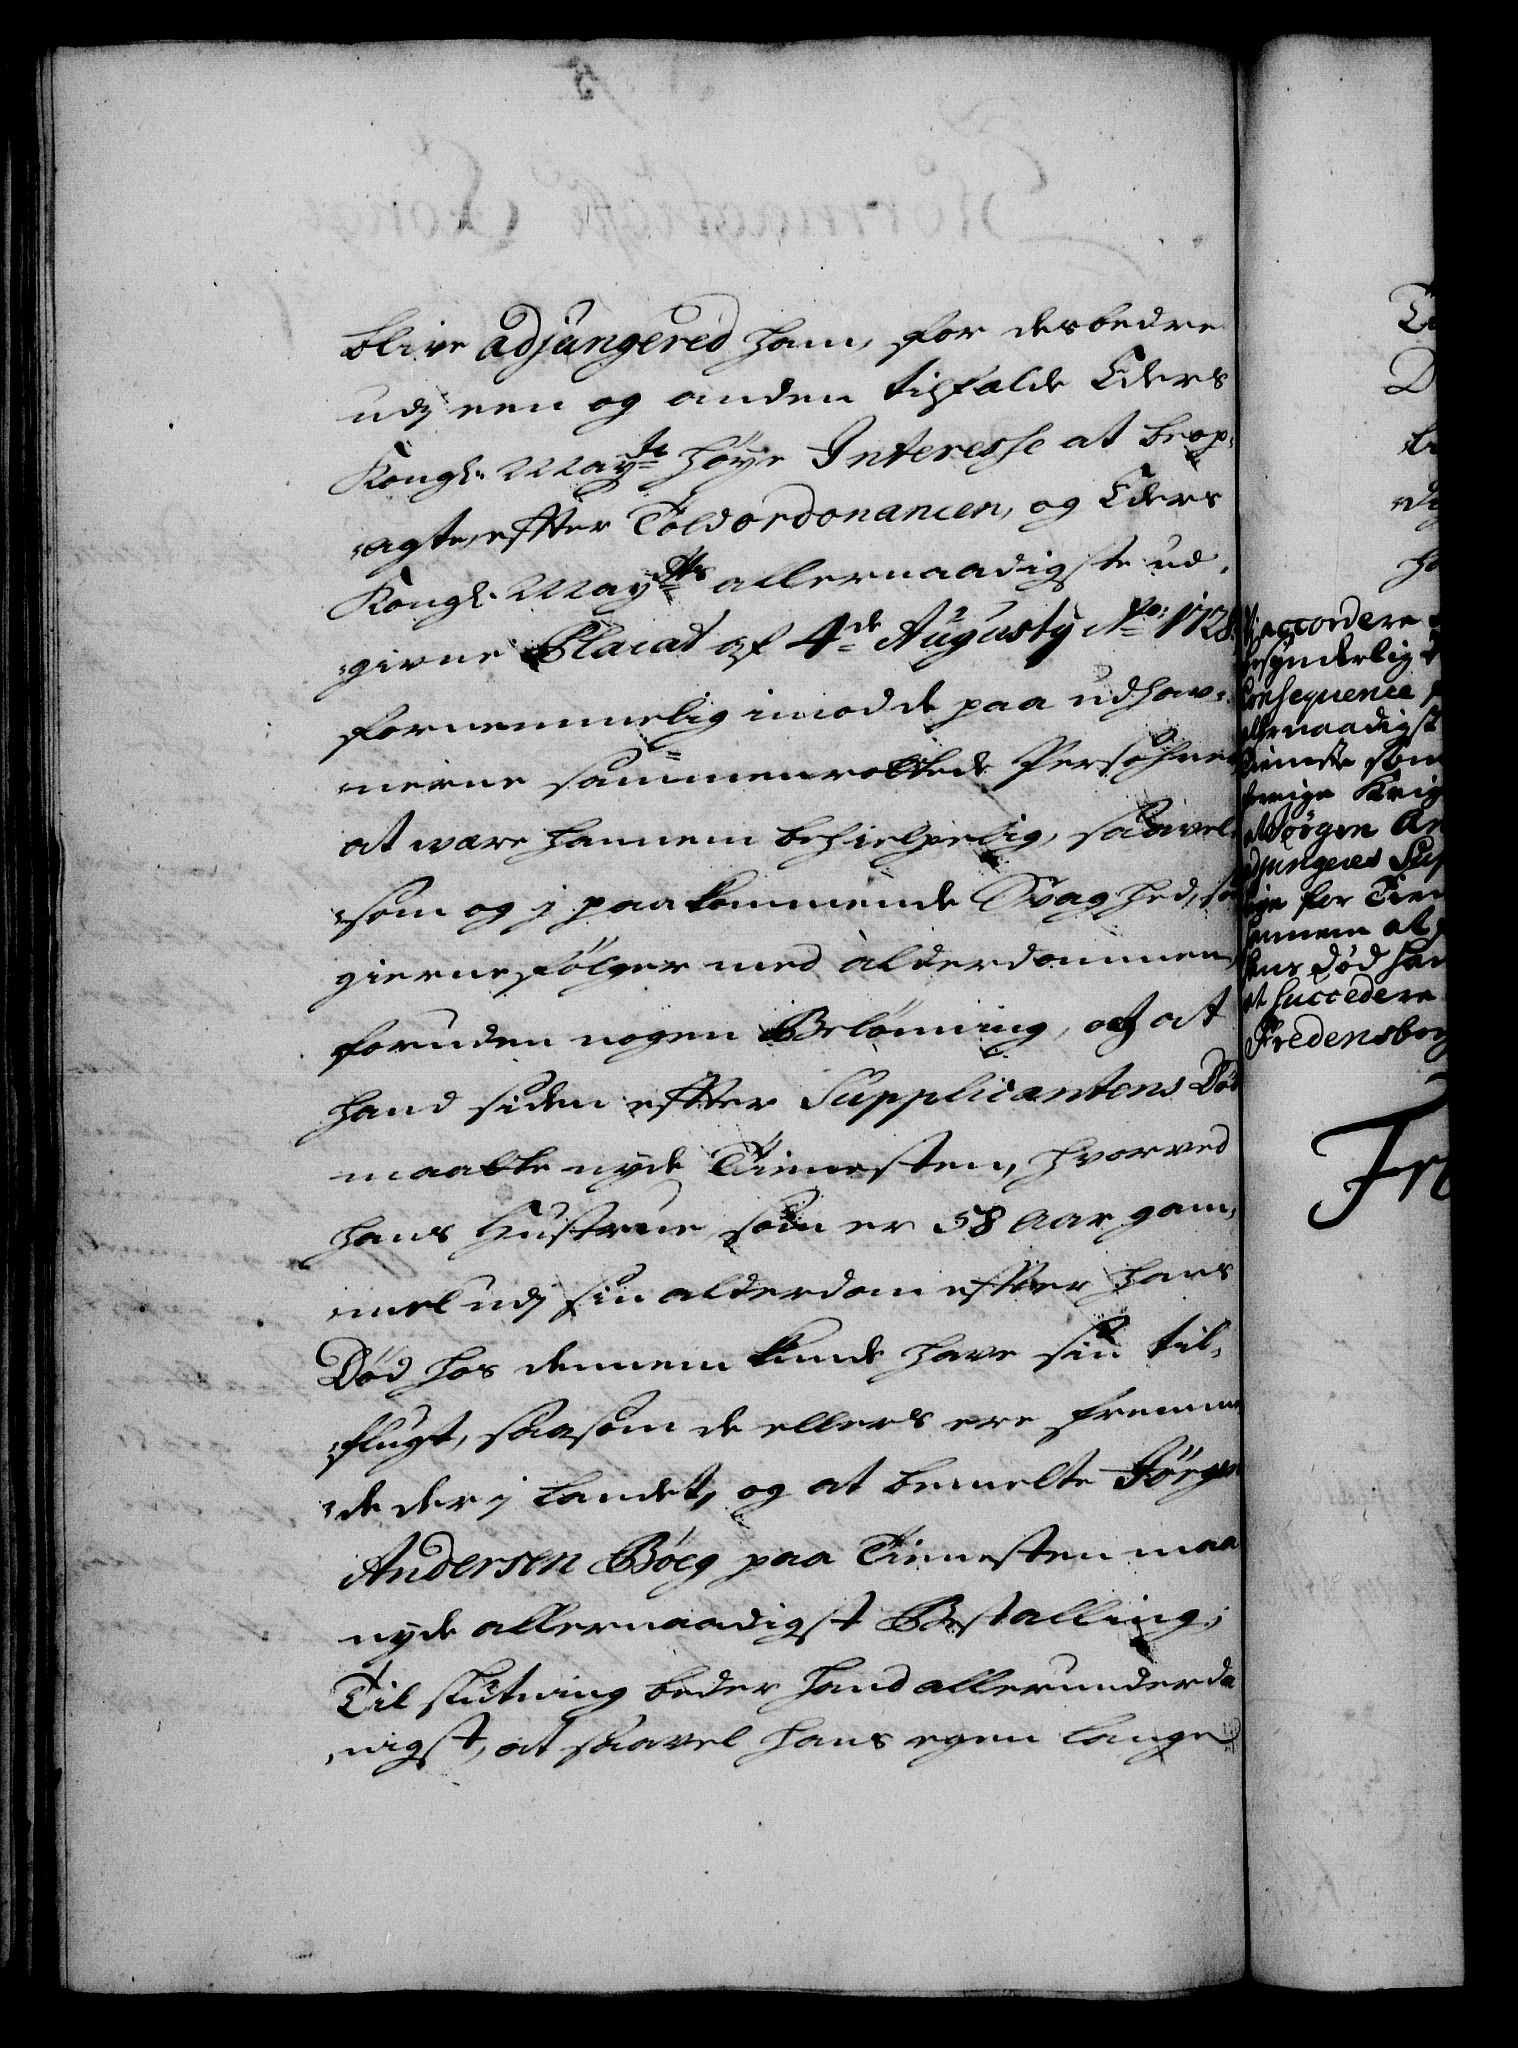 blive adjungered ham, for desbedre
udj een og anden tilfælde Eders
Kongl. Mayts høye Interesse at beob-
agte, effter Toldordonancen, og Eders
Kongl. Mayts allernaadigste ud-
givne Placat af 4de Augusty Ao: 1728,
fornemmelig imod de paa udhav-
nerne sammenrottede Persohner
at være hannem behielpelig, saavel
som og j paakommende Svaghed, som
gierne følger med alderdommen,
foruden nogen Belønning, og at
hand siden effter Supplicantens Død
maatte nyde Tienesten, hvorved
hans Hustrue som er 58 Aar gam-
mel udj sin alderdom effter hans
Død hos dennem kunde have sin til-
flugt, saasom de ellers ere fremme
de der j landet, og at bemelte Jørgen
Andersen Bøeg paa Tienesten maa
nyde allernaadigst Bestalling;
Til slutning beder hand allerunderda
nigst, at saavel hans egen lange
accordere
besynderlig
Consequence
allernaadigst
Tieneste som
forige Krig
Jørgen An
adjungeres Sup
for Tien
hannem at
hans død han
at succedere
Fredensborg
Fr